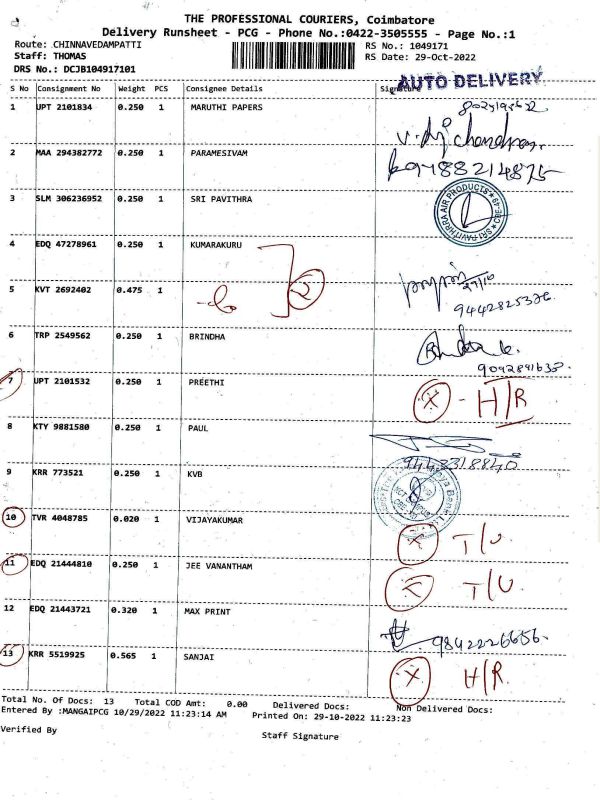 THE PROFESSIONAL COURIERS, Coimbatore
Delivery Runsheet - PCG - Phone No.:0422-3505555 - Page No.:1
Route: CHINNAVEDAMPATTI RS No.: 1049171
Staff: THOMAS RS Date: 29-Oct-2022
DRS No.: DCJB104917101
AUTO DELIVERY
S No Consignment No Weight PCS Consignee Details
1 UPT 2101834 0.250 1 MARUTHI PAPERS
2 MAA 294382772 0.250 1 PARAMESIVAM
3 SLM 306236952 0.250 1 SRI PAVITHRA
SRI PAVITHRA AIR PRODUCTS
4 EDQ 47278961 0.250 1 KUMARAKURU
2
5 KVT 2692402 0.475 1
29/10
9442825326
6 TRP 2549562 0.250 1 BRINDHA
7 UPT 2101532 0.250 1 PREETHI
X - H/R
8 KTY 9881580 0.250 1 PAUL
9443318840
9 KRR 773521 0.250 1 KVB
10 TVR 4048785 0.020 1 VIJAYAKUMAR
X T/U
11 EDQ 21444810 0.250 1 JEE VANANTHAM
T/U
12 EDQ 21443721 0.320 1 MAX PRINT
9842226656
13 KRR 5519925 0.565 1 SANJAI
X H/R
Total No. Of Docs: 13 Total COD Amt: 0.00 Delivered Docs: Non Delivered Docs:
Entered By :MANGAIPCG 10/29/2022 11:23:14 AM Printed On: 29-10-2022 11:23:23
Verified By Staff Signature